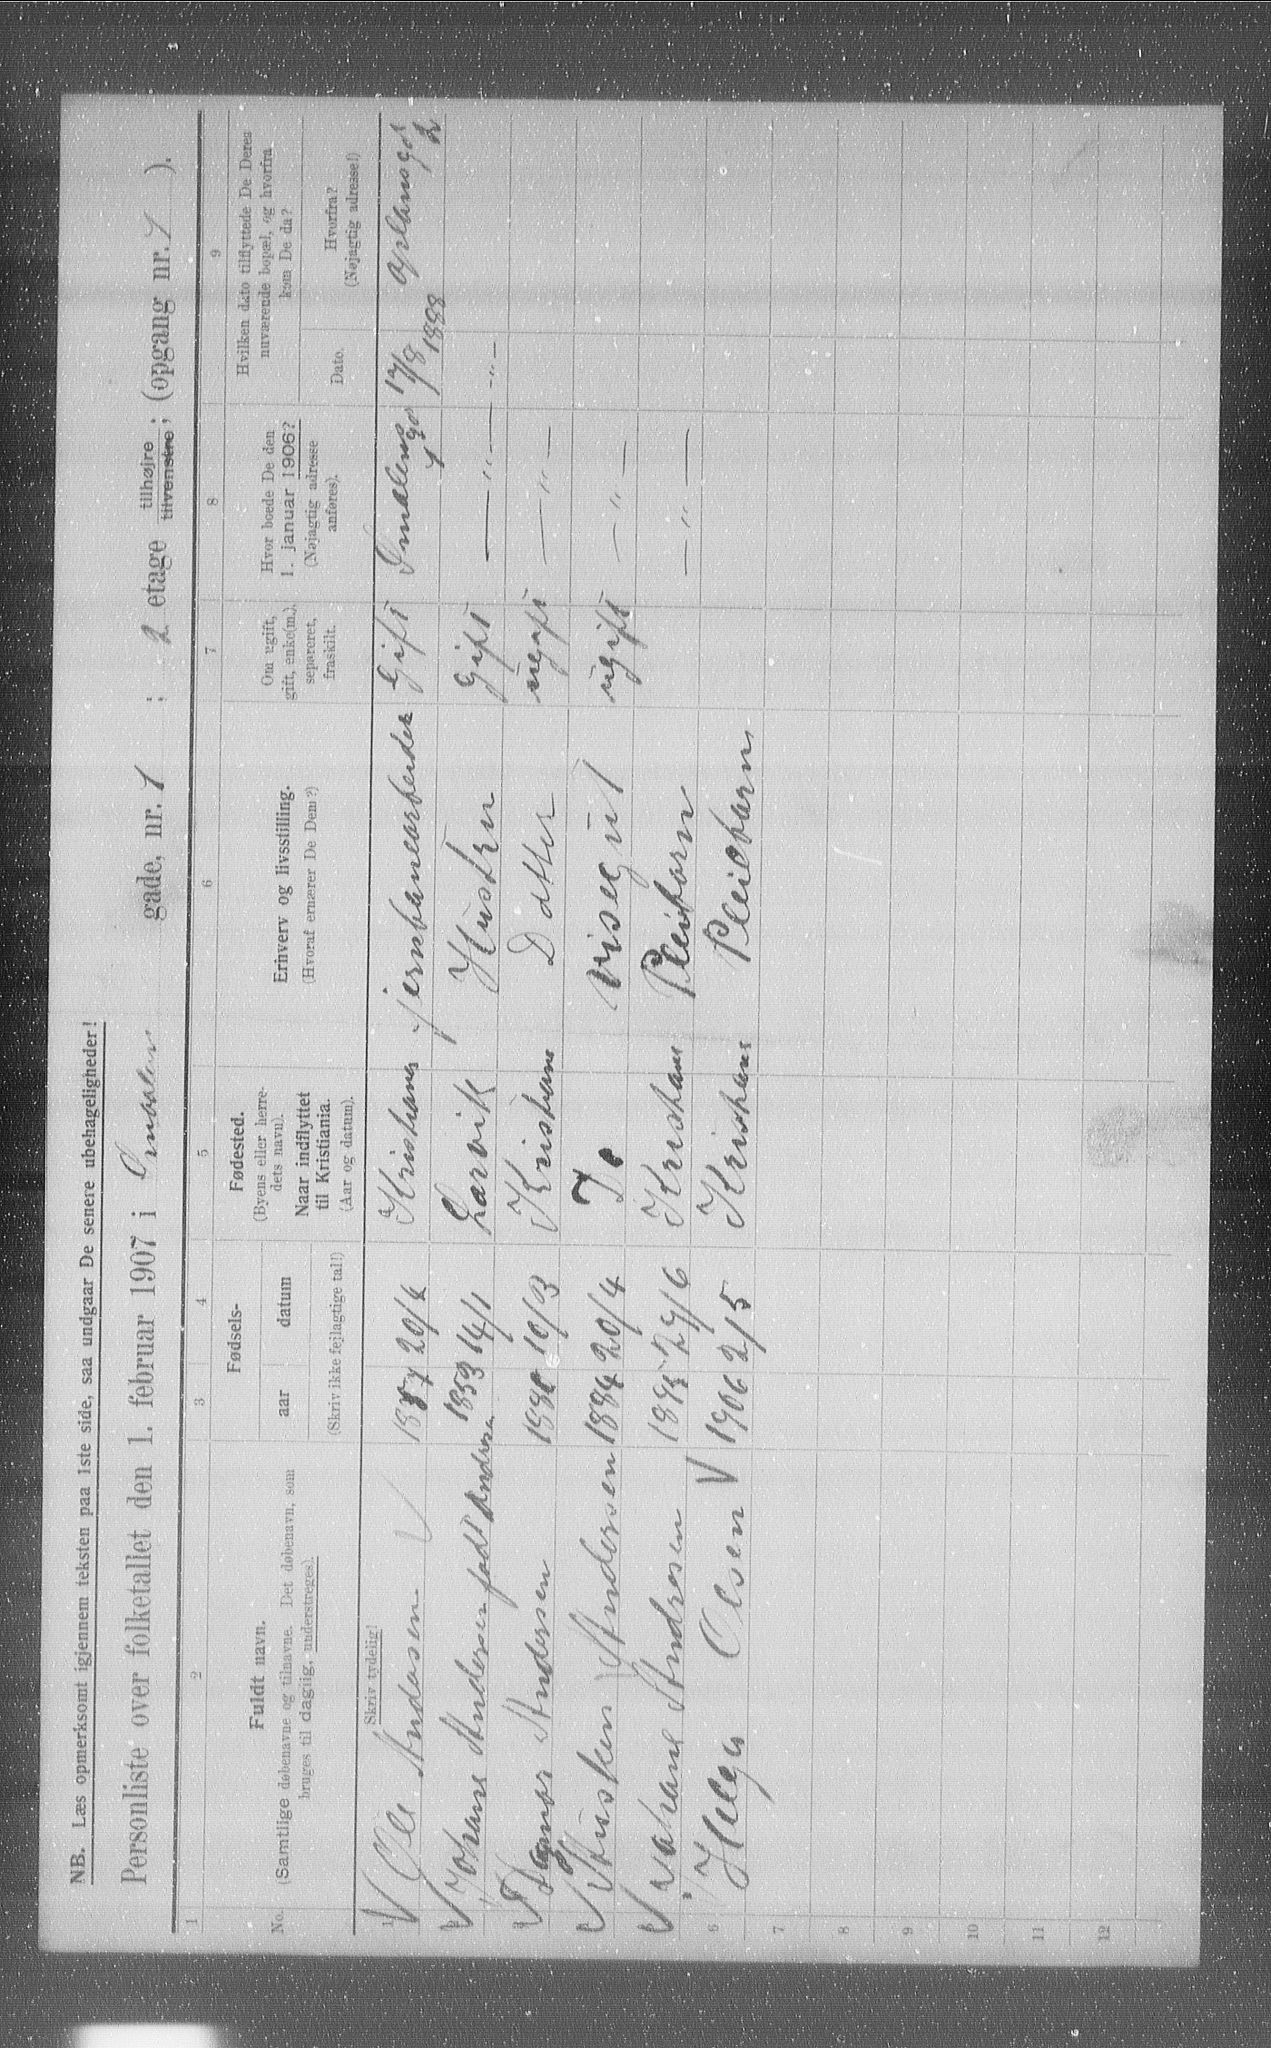 NB. Læs opmerksomt igjennem teksten paa 1ste side, saa undgaar De senere ubehageligheder!
Personliste over folketallet den 1. februar 1907 i Smaalens gade, nr. 1 ; 2 etage tilhøjre tilvenstre ; (opgang nr. 1 ).
1 2 3 4 5 6 7 8 9
No.
Fuldt navn.
(Samtlige døbenavne og tilnavne. Det døbenavn, som
bruges til daglig, understreges).
Fødsels-
aar datum
(Skriv ikke fejlagtige tal!)
Fødested.
(Byens eller herre-
dets navn).
Naar indflyttet
til Kristiania.
(Aar og datum).
Erhverv og livsstilling.
(Hvoraf ernærer De Dem?)
Om ugift,
gift, enke(m.),
separeret,
fraskilt.
Hvor boede De den
1. januar 1906?
(Nøjagtig adresse
anføres).
Hvilken dato tilflyttede De Deres
nuværende bopæl, og hvorfra
kom De da?
Dato.
Hvorfra?
(Nøjagtig adresse!)
Skriv tydelig!
1 Ole Andersen 1857 20/4 Kristiania jernbanearbeider Gift Smalensgd 1 17/8 1888 Oplansgd 2
Johane Andersen født Andresen 1853 14/1 Larvik Hustru Gift — " — — " —
Dagmar Andersen 1880 10/3 Kristiania Datter ugift — " —
Andersen 1884 20/4 Do visergut ugift — " —
Andresen 1895 29/6 Kristiania Pleibarn — " —
6 Helga Olsen 1906 2/5 Kristiania Pleiebarn
7
8
9
10
11
12